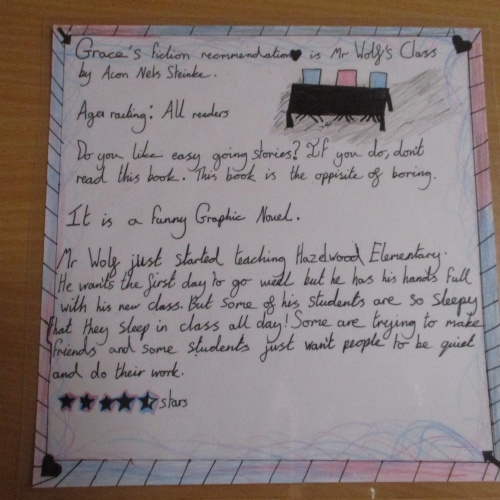 Grace's fiction recommendation is Mr Wolf's Class
by Aron Nels Steinke.
Age rating: All readers
Do you like easy going stories? If you do, don't
read this book. This book is the oppisite of boring.
It is a funny Graphic Novel.
Mr Wolf just started teaching Hazelwood Elementary.
He wants the first day to go well but he has his hands full
with his new class. But some of his students are so sleepy
that they sleep in class all day! Some are trying to make
friends and some students just want people to be quiet
and do their work.
stars